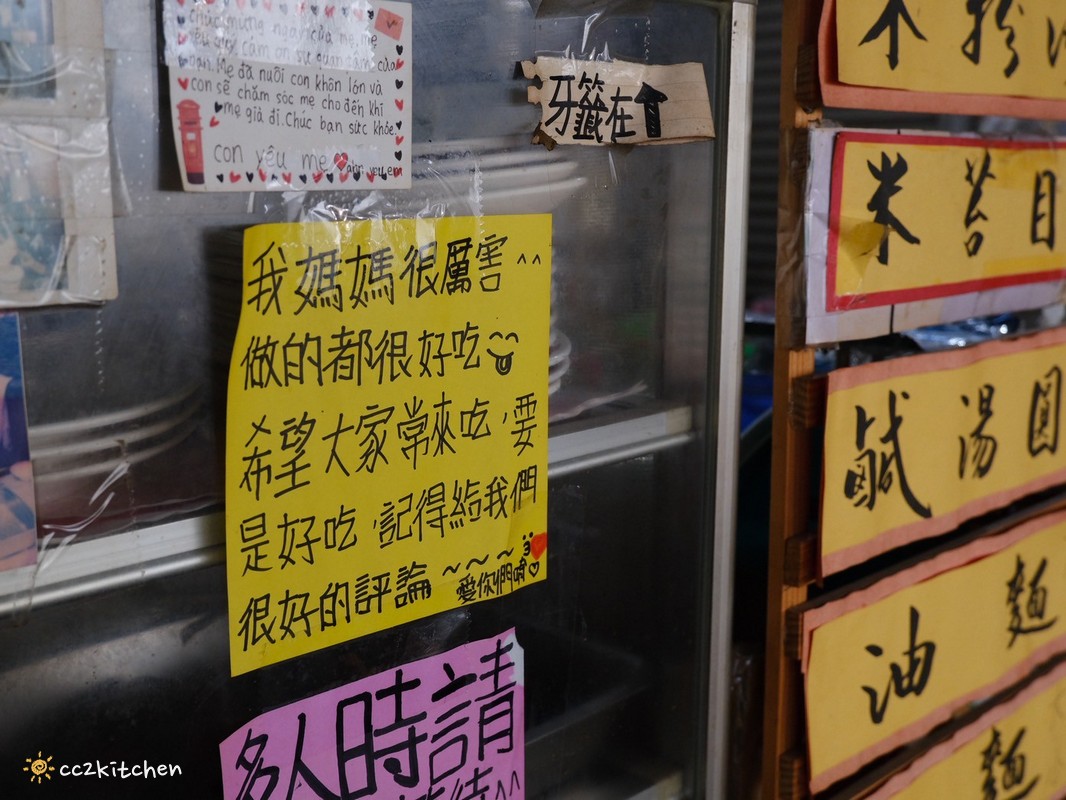 chúc mừng ngày của mẹ, mẹ
yêu quý cảm ơn sự quan tâm của
bạn. Mẹ đã nuôi con khôn lớn và
con sẽ chăm sóc mẹ cho đến khi
mẹ già đi. Chúc bạn sức khỏe.
con yêu mẹ
牙籤在⬆
我媽媽很厲害^^
做的都很好吃
希望大家常來吃，要
是好吃，記得給我們
很好的評論~~~
愛你們唷♡
多人時請
米粉
米苔目
鹹湯圓
油麵
麵
cc2kitchen